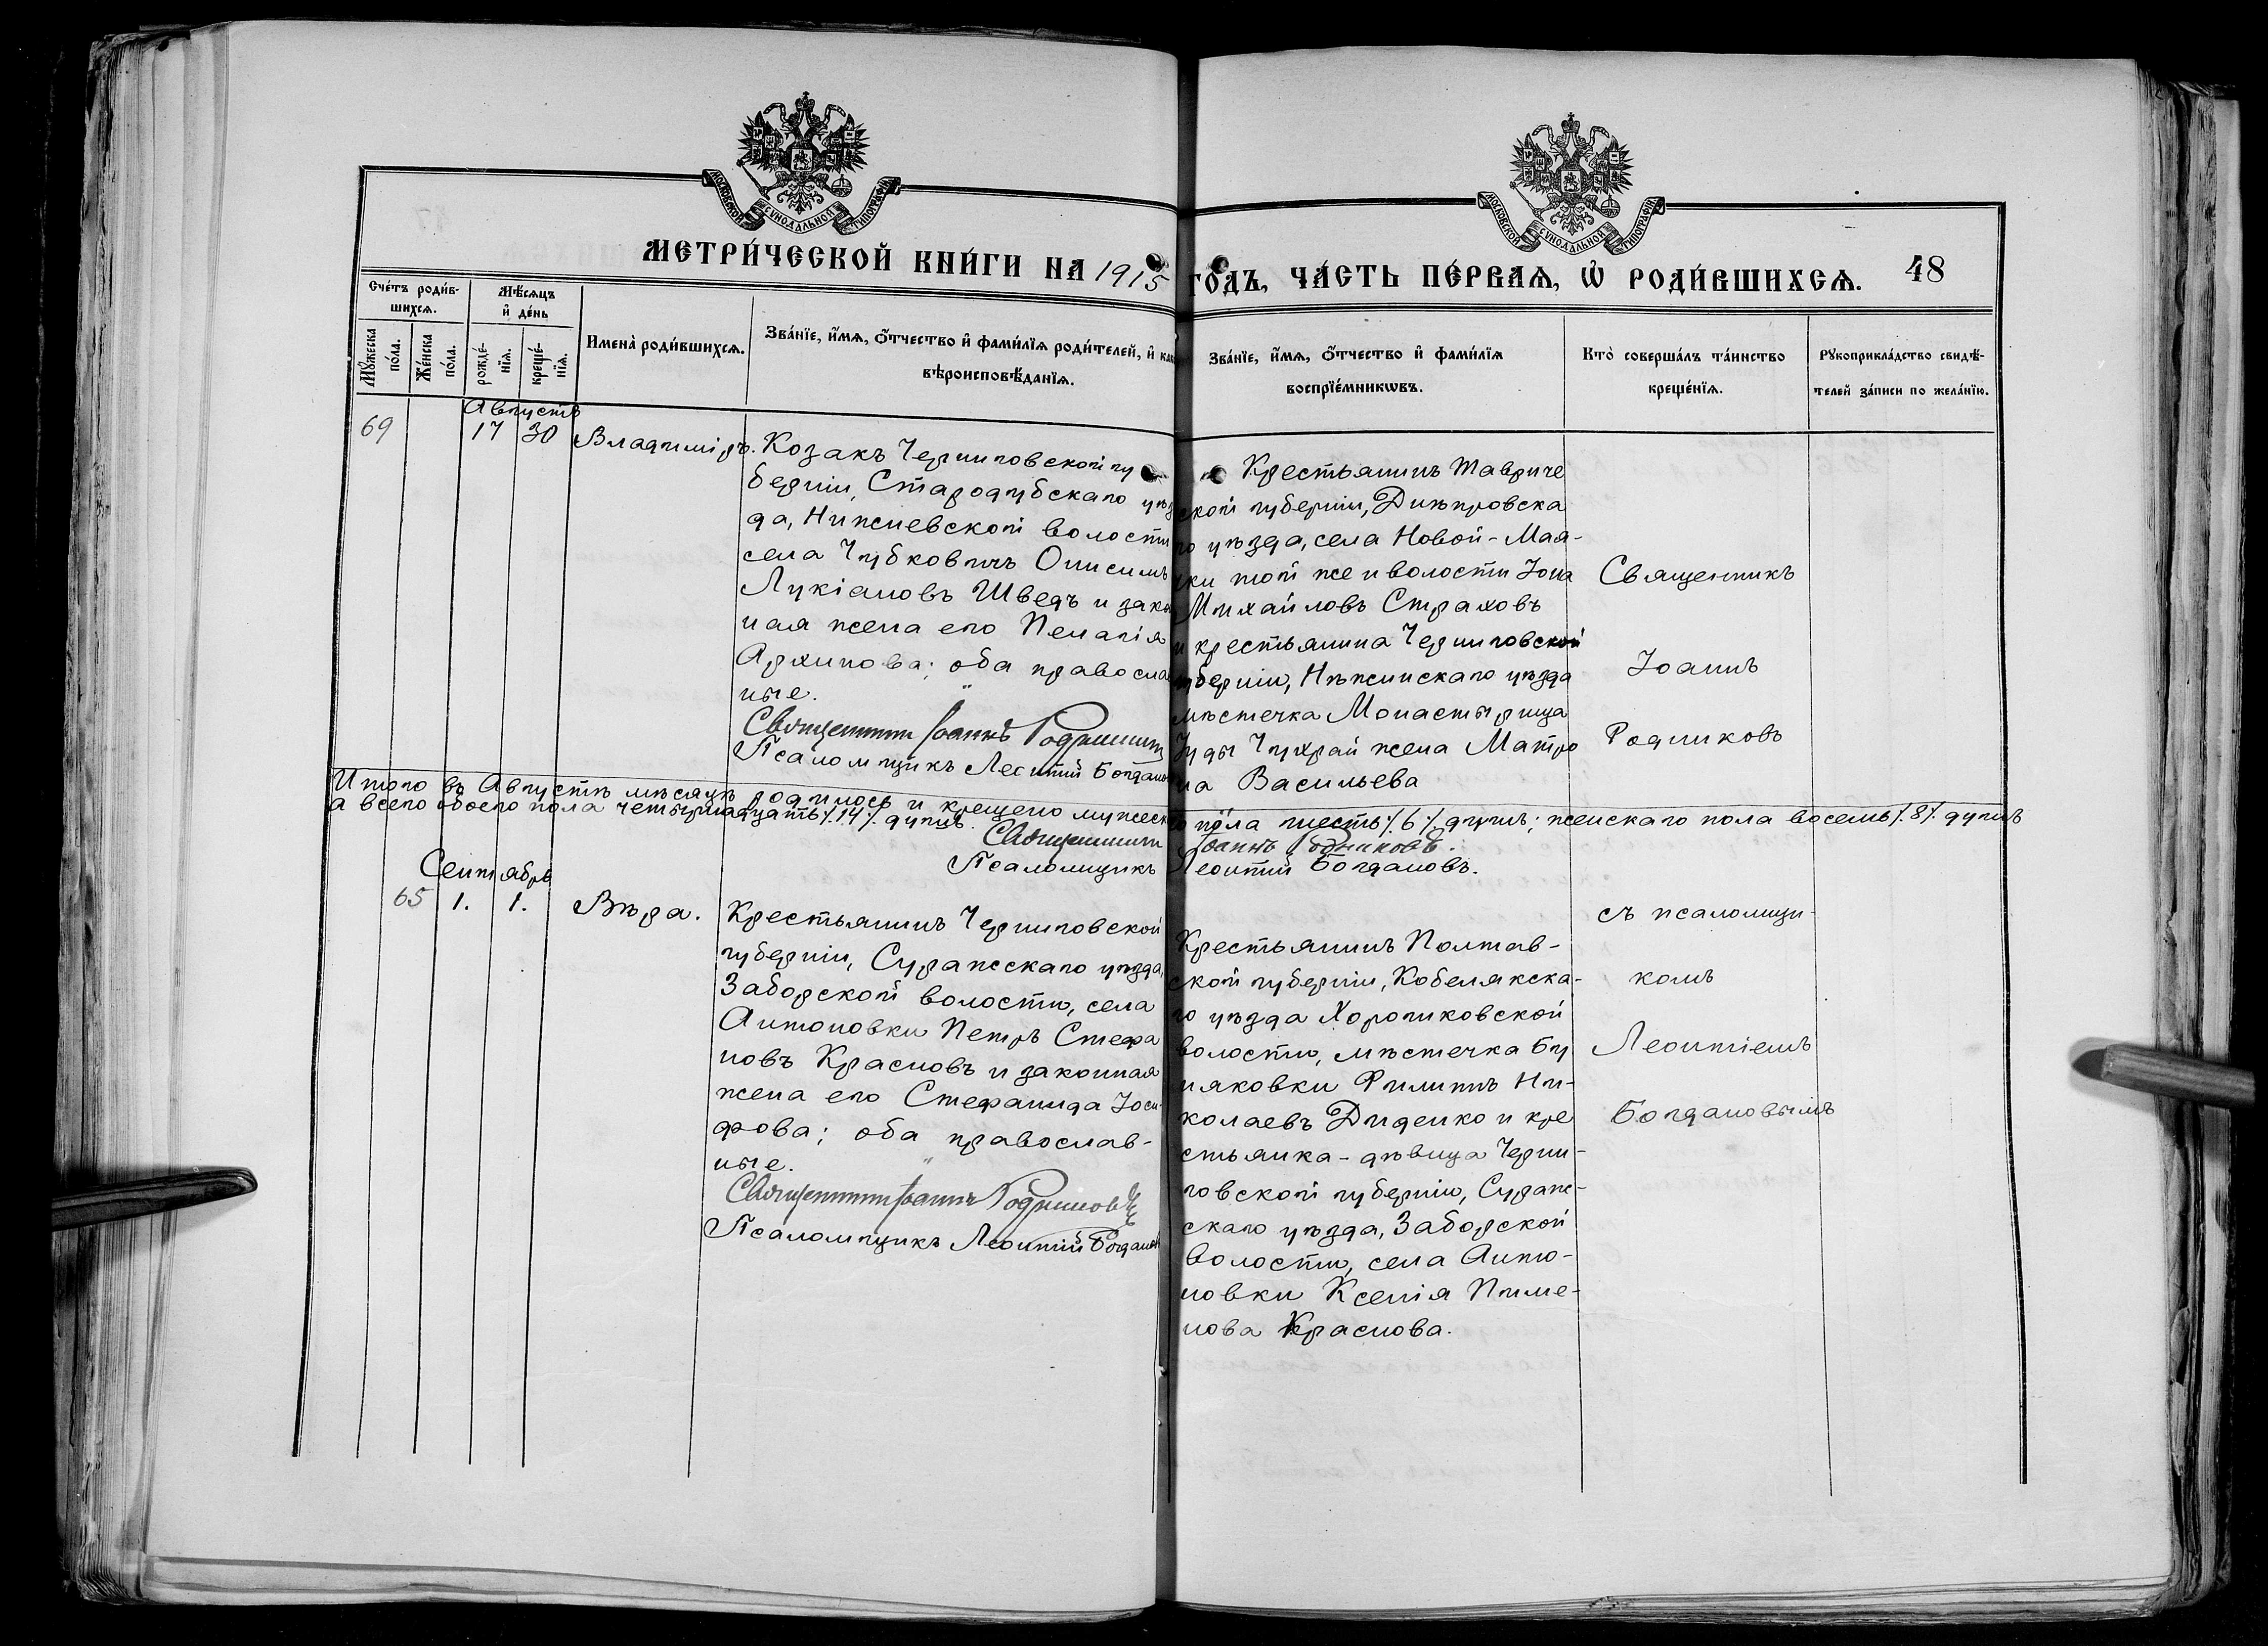 МОСКОВСКОЙ СѴНОДАЛЬНОЙ ТИПОГРАФІИ
МОСКОВСКОЙ СѴНОДАЛЬНОЙ ТИПОГРАФІИ
МЕТРИ́ЧЕСКОЙ КНИ́ГИ НА 1915 ГО́ДЪ, ЧА́СТЬ ПЕ́РВАѦ, Ѡ РОДИ́ВШИХСѦ. 48
Сче́тъ роди́в-
шихсѧ.
Мꙋ́жеска
по́ла.
Же́нска
по́ла.
Мѣ́сѧцъ
и де́нь
рожде́-
нїѧ.
креще́-
нїѧ.
Имена̀ роди́вшихсѧ.
Зва́нїе, и́мѧ, ѻ́тчество и фами́лїѧ роди́телей, и
вѣроисповѣ́данїѧ.
Зва́нїе, и́мѧ, ѻ́тчество и фами́лїѧ
воспрїе́мникѡвъ.
Кто̀ соверша́лъ та́инство
креще́нїѧ.
Рꙋкоприкла́дство свидѣ́-
телей за́писи по жела́нїю.
Августъ
69 17 30 Владиміръ.
Козакъ Черниговской гу
берніи, Стародубскаго уѣз
да, Нижневской волости
села Чубковичъ Онисимъ
Лукіановъ Шведъ и закон
ная жена его Пелагія
Архипова; оба правосла
ные.
Священникъ Іоаннъ Родниковъ
Псаломщикъ Леонтій Богданов
Крестьянинъ Тавриче
ской губерніи, Днѣпровска
го уѣзда, села Новой-Мая-
чки той же и волости Іона
Михайловъ Страховъ
и крестьянина Черниговской
губерніи, Нѣжинскаго уѣзда
мѣстечка Монастырища
Іуды Чухрай жена Матро
на Васильева
Священникъ
Іоаннъ
Родниковъ
съ псаломщи-
комъ
Леонтіемъ
Богдановымъ
Итого въ Августѣ мѣсяцѣ родилось и крещено мужеска го пола шесть /. 6 /. душъ; женскаго пола восемь /. 8 /. душъ
а всего обоего пола четырнадцать /. 14 /. душъ.
Священникъ Іоаннъ Родниковъ.
Псаломщикъ Леонтій Богдановъ.
Сентябрь
65 1. 1. Вѣра.
Крестьянинъ Черниговской
губерніи, Суражскаго уѣзда,
Заборской волости, села
Антоновки Петръ Стефа
новъ Красновъ и законная
жена его Стефанида Іоси
фова; оба православ-
ные.
Священникъ Іоаннъ Родниковъ
Псаломщикъ Леонтій Богданов
Крестьянинъ Полтав-
ской губерніи, Кобелякска-
го уѣзда Хорошковской
волости, мѣстечка Бу
няковки Филиппъ Ни-
колаевъ Диденко и кре
стьянка-дѣвица Черни-
говской губерніи, Сураж-
скаго уѣзда, Заборской
волости, села Анто-
новки Ксенія Пиме-
нова Краснова.